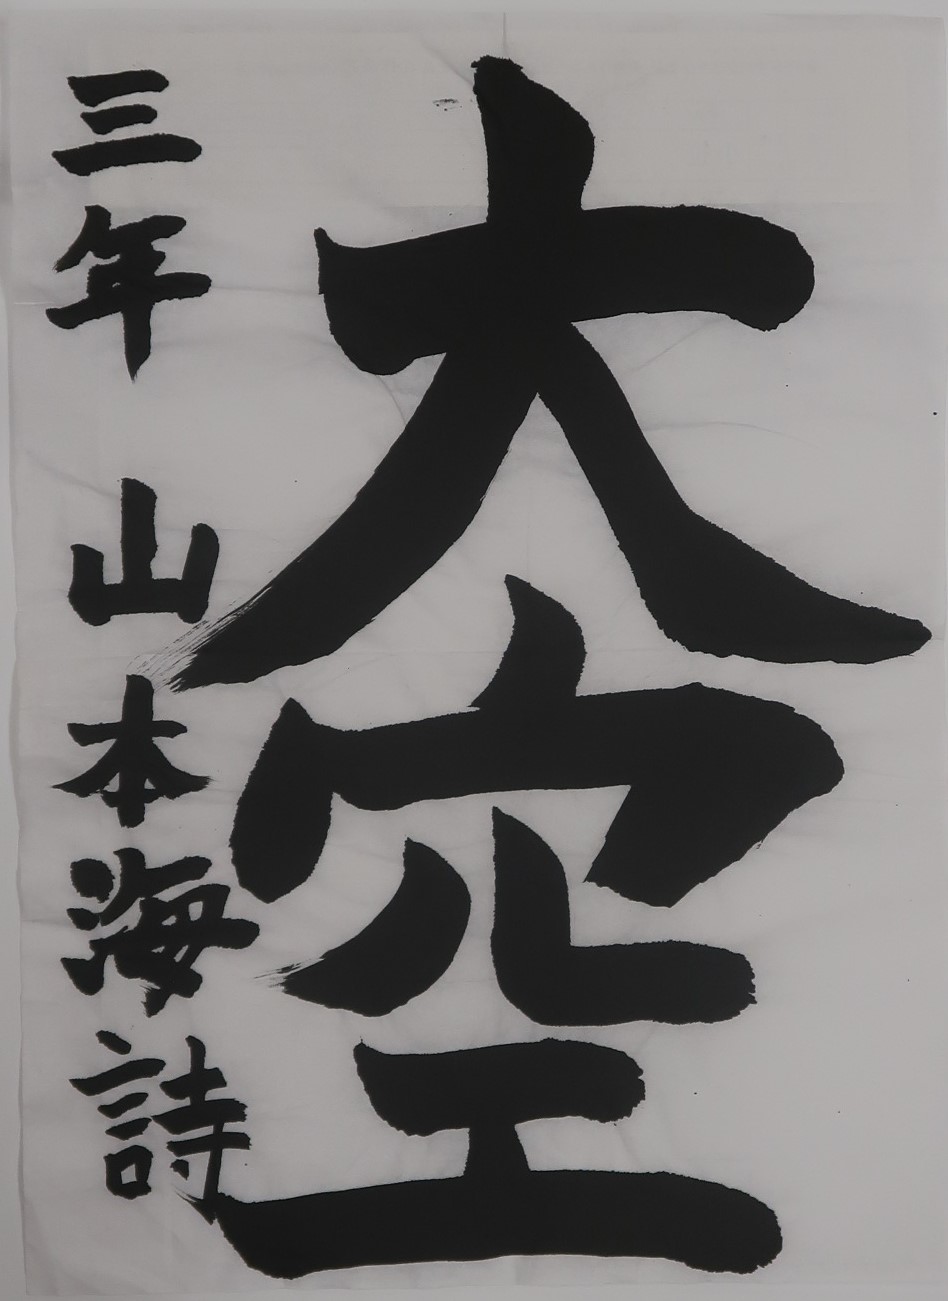 大空
三年 山本海詩